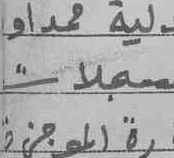 لية محمداو
سجلات
رة الموجزة